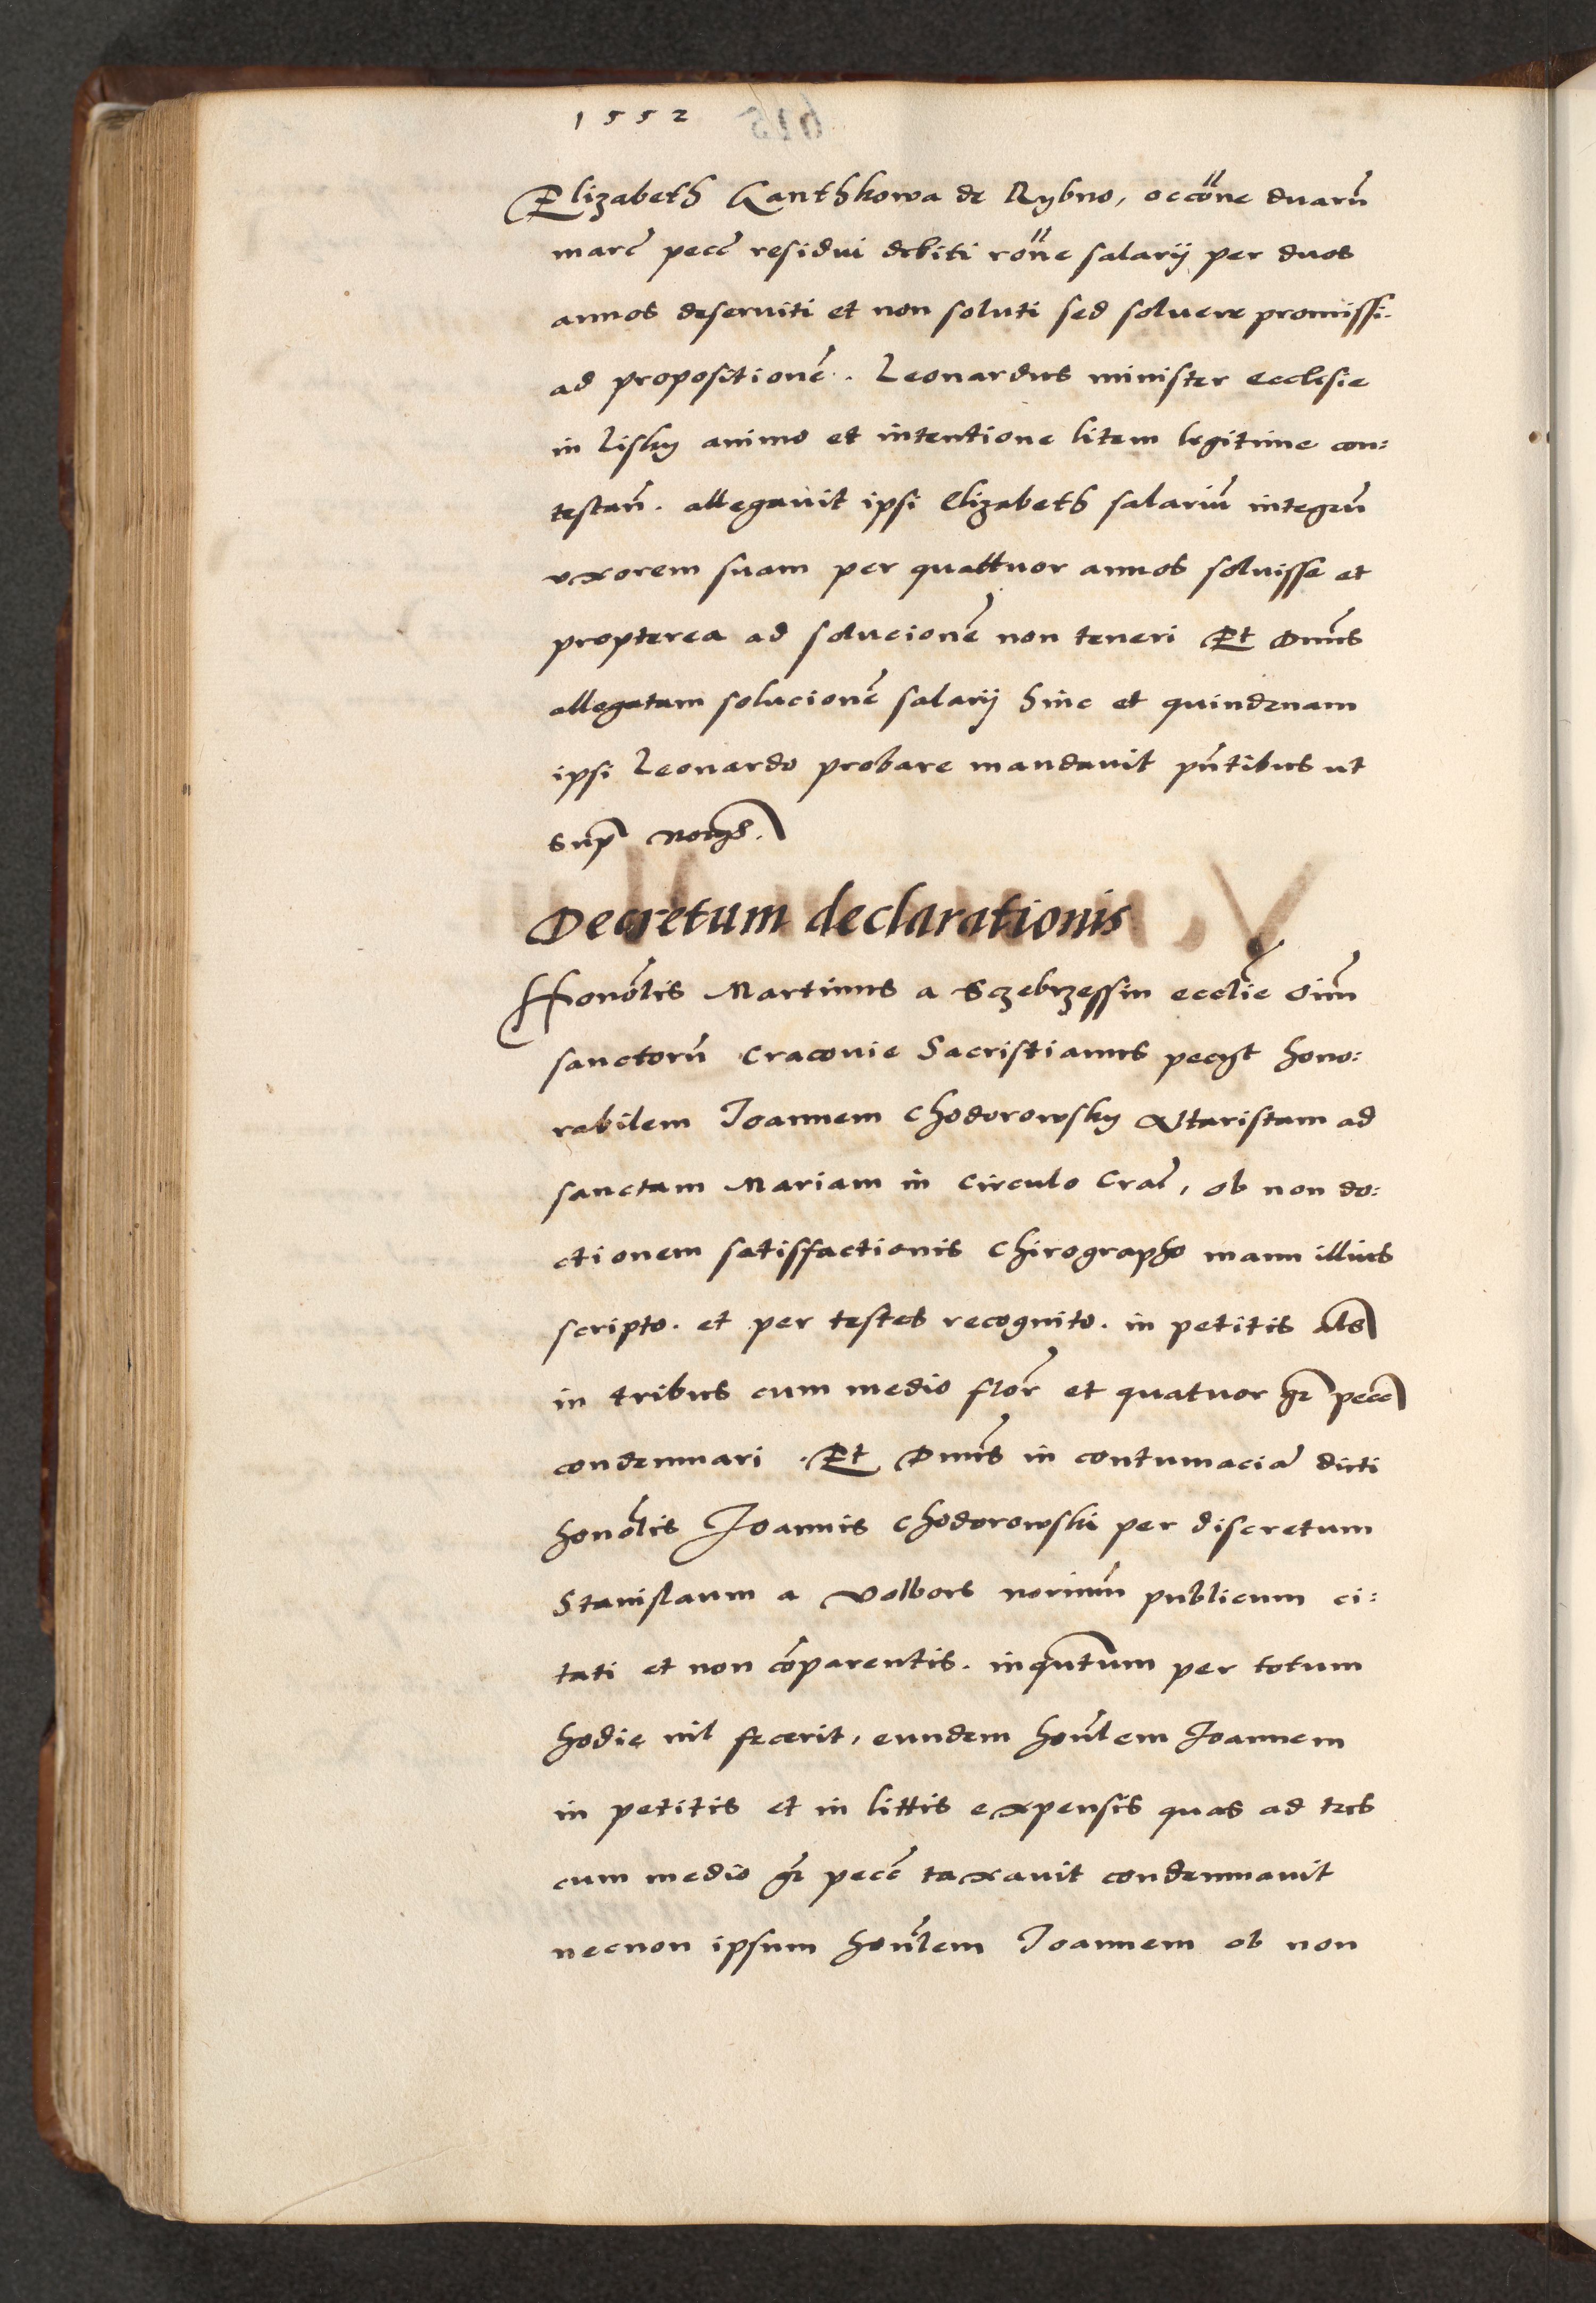 1552
Elizabeth Kanthkowa de Rybno, occõne duarũ
marc̃ pecc̃ residui debiti rõne salarij per duos
annos deserviti et non soluti sed soluere promissi.
ad propositionẽ. Leonardus minister ecclesie
in Lisky animo et intentione litem legitime con:
testañ. allegauit ipsi Elizabeth salariũ integrũ
uxorem suam per quattuor annos soluisse et
propterea ad solucionẽ non teneri Et Dnũs
allegatam solucionẽ salarij hinc et quindenam
ipsi Leonardo probare mandauit pñtibus ut
sup̃
Decretum declarationis
Honorlis Martinus a Sczebrzessin ecclie oim̃
sanctorũ Cracouie Sacristianus peciit hono:
rabilem Joannem Chodorowsky Altaristam ad
sanctam Mariam in Circulo Crac̃, ob non do:
ctionem satisfactionis Chirographo manu illius
scripto. et per testes recognito. in petitis als
in tribus cum medio flor̃ et quatuor gr̃ pecc̃
condemnari. Et Dnũs in contumaciã dicti
honorlis Joannis Chodorowski per discretum
Stanislaum a Volbors norium̃ publicum ci:
tati et non cõparentis. inqñtum per totum
hodie nil fecerit, eundem honlem Joannem
in petitis et in littis expensis quas ad tres
cum medio gr̃ pecc̃ taxauit condemnauit
necnon ipsum honlem Joannem ob non